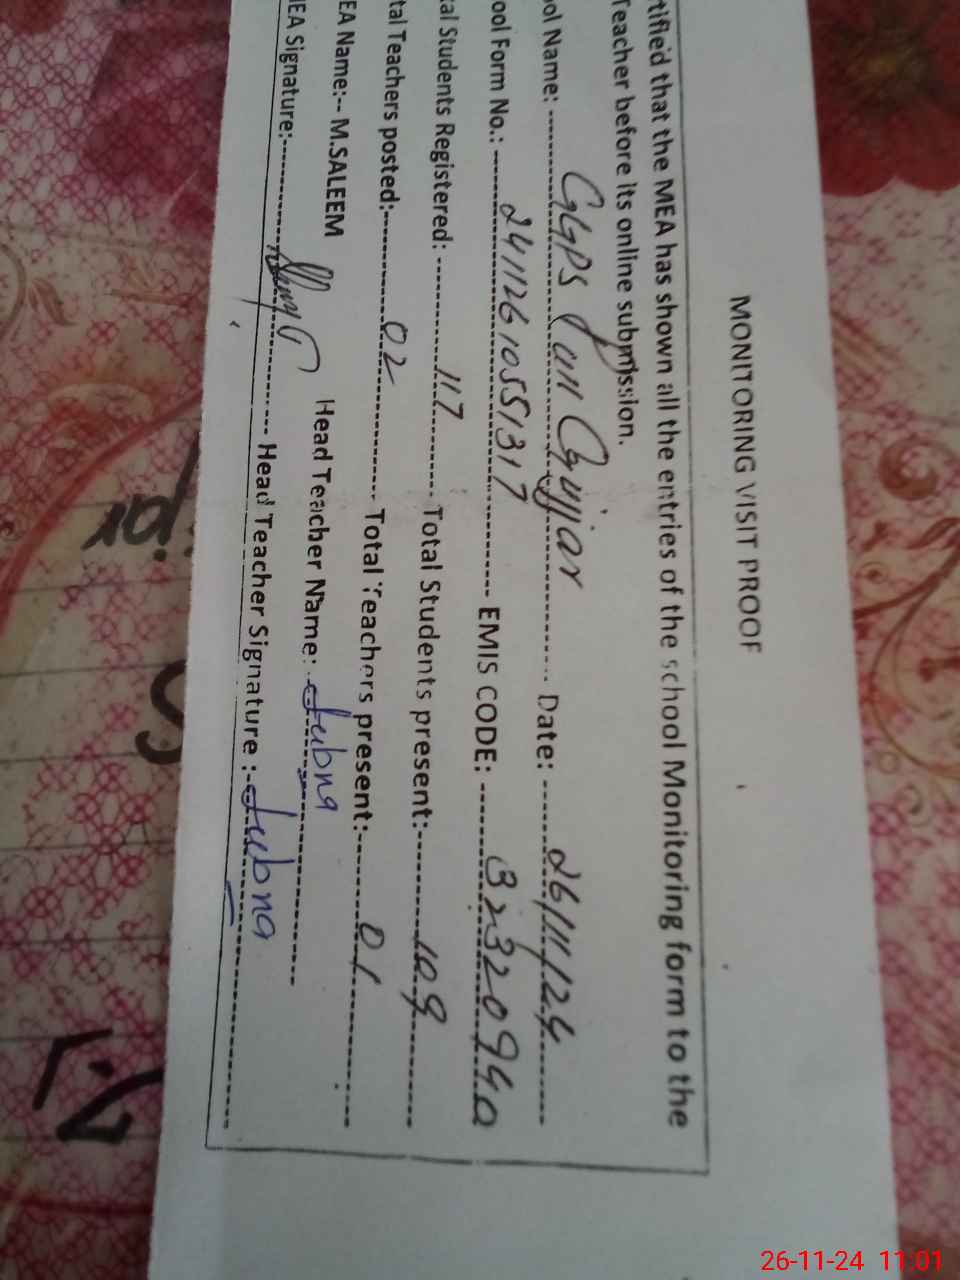 MONITORING VISIT PROOF
rtified that the MEA has shown all the entries of the school Monitoring form to the
Teacher before its online submission.
ool Name: GGPS Gujjar Date: 26/11/24
ool Form No.: 241126 10551317 EMIS CODE: 32320940
tal Students Registered: 117 Total Students present: 109
tal Teachers posted: 02 Total Teachers present: 01
EA Name:-- M.SALEEM Head Teacher Name: Lubna
MEA Signature: Head Teacher Signature : Lubna
26-11-24 11:01